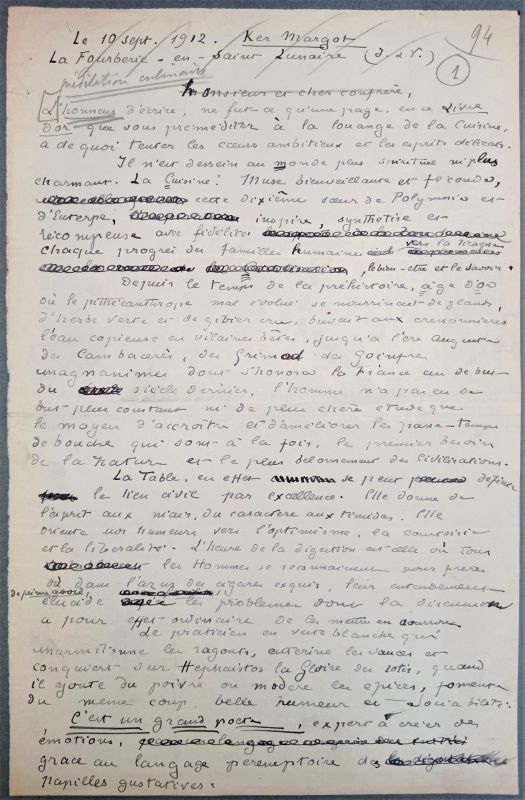 94
1
Le 10 sept. 1912. Ker Margot
La Fourberie - en - Saint Lunaire (I. & V.)
méditation culinaire
Monsieur et cher confrère,
L'honneur d'écrire, ne fut-ce qu'une page, en ce Livre
d'or que vous préméditez à la louange de la Cuisine,
a de quoi tenter les cœurs ambitieux et les esprits délicats.
Il n'est dessein au monde plus spirituel ni plus
charmant. La Cuisine! Muse bienveillante et féconde,
cette dixième sœur de Polymnie et
d'Euterpe, inspire, synthétise et
récompense avec fidélité
chaque progrès des familles humaines vers la
, le bien-être et le savoir.
Depuis le temps de la préhistoire, âge d'or
où le pithécanthrope mal évolué se nourrissait de glands,
d'herbe verte et de gibier cru, buvait aux
l'eau copieuse en vilaines bêtes, jusqu'à l'ère auguste
des Cambacérès, des Grimod des Goinfres
magnanimes dont s'honora la France au début
du siècle dernier, l'homme n'a pas eu de
but plus constant ni de plus chère étude que
le moyen d'accroître et d'améliorer les passe-temps
de bouche qui sont à la fois, le premier besoin
de la Nature et le plus bel ornement des Civilisations.
La Table, en effet se peut définir
le lien civil par excellence. Elle donne de
l'esprit aux niais, du caractère aux timides. Elle
oriente nos humeurs vers l'optimisme, la courtoisie
et la libéralité. L'heure de la digestion est celle où tous
les Hommes se reconnaissent pour frères
où dans l'azur des cigares exquis, leur entendement
de prime abord, élucide les problèmes dont la discussion
a pour effet ordinaire de les mettre en courroux.
Le praticien en veste blanche qui
marmitonne les ragoûts, entérine les sauces et
conquiert sur Héphaistos la Gloire des rôtis, quand
il ajoute du poivre ou modère les épices, fomente
du même coup belle humeur et sociabilité.
C'est un grand poète, expert à créer des
émotions,
grâce au langage péremptoire des
papilles gustatives.